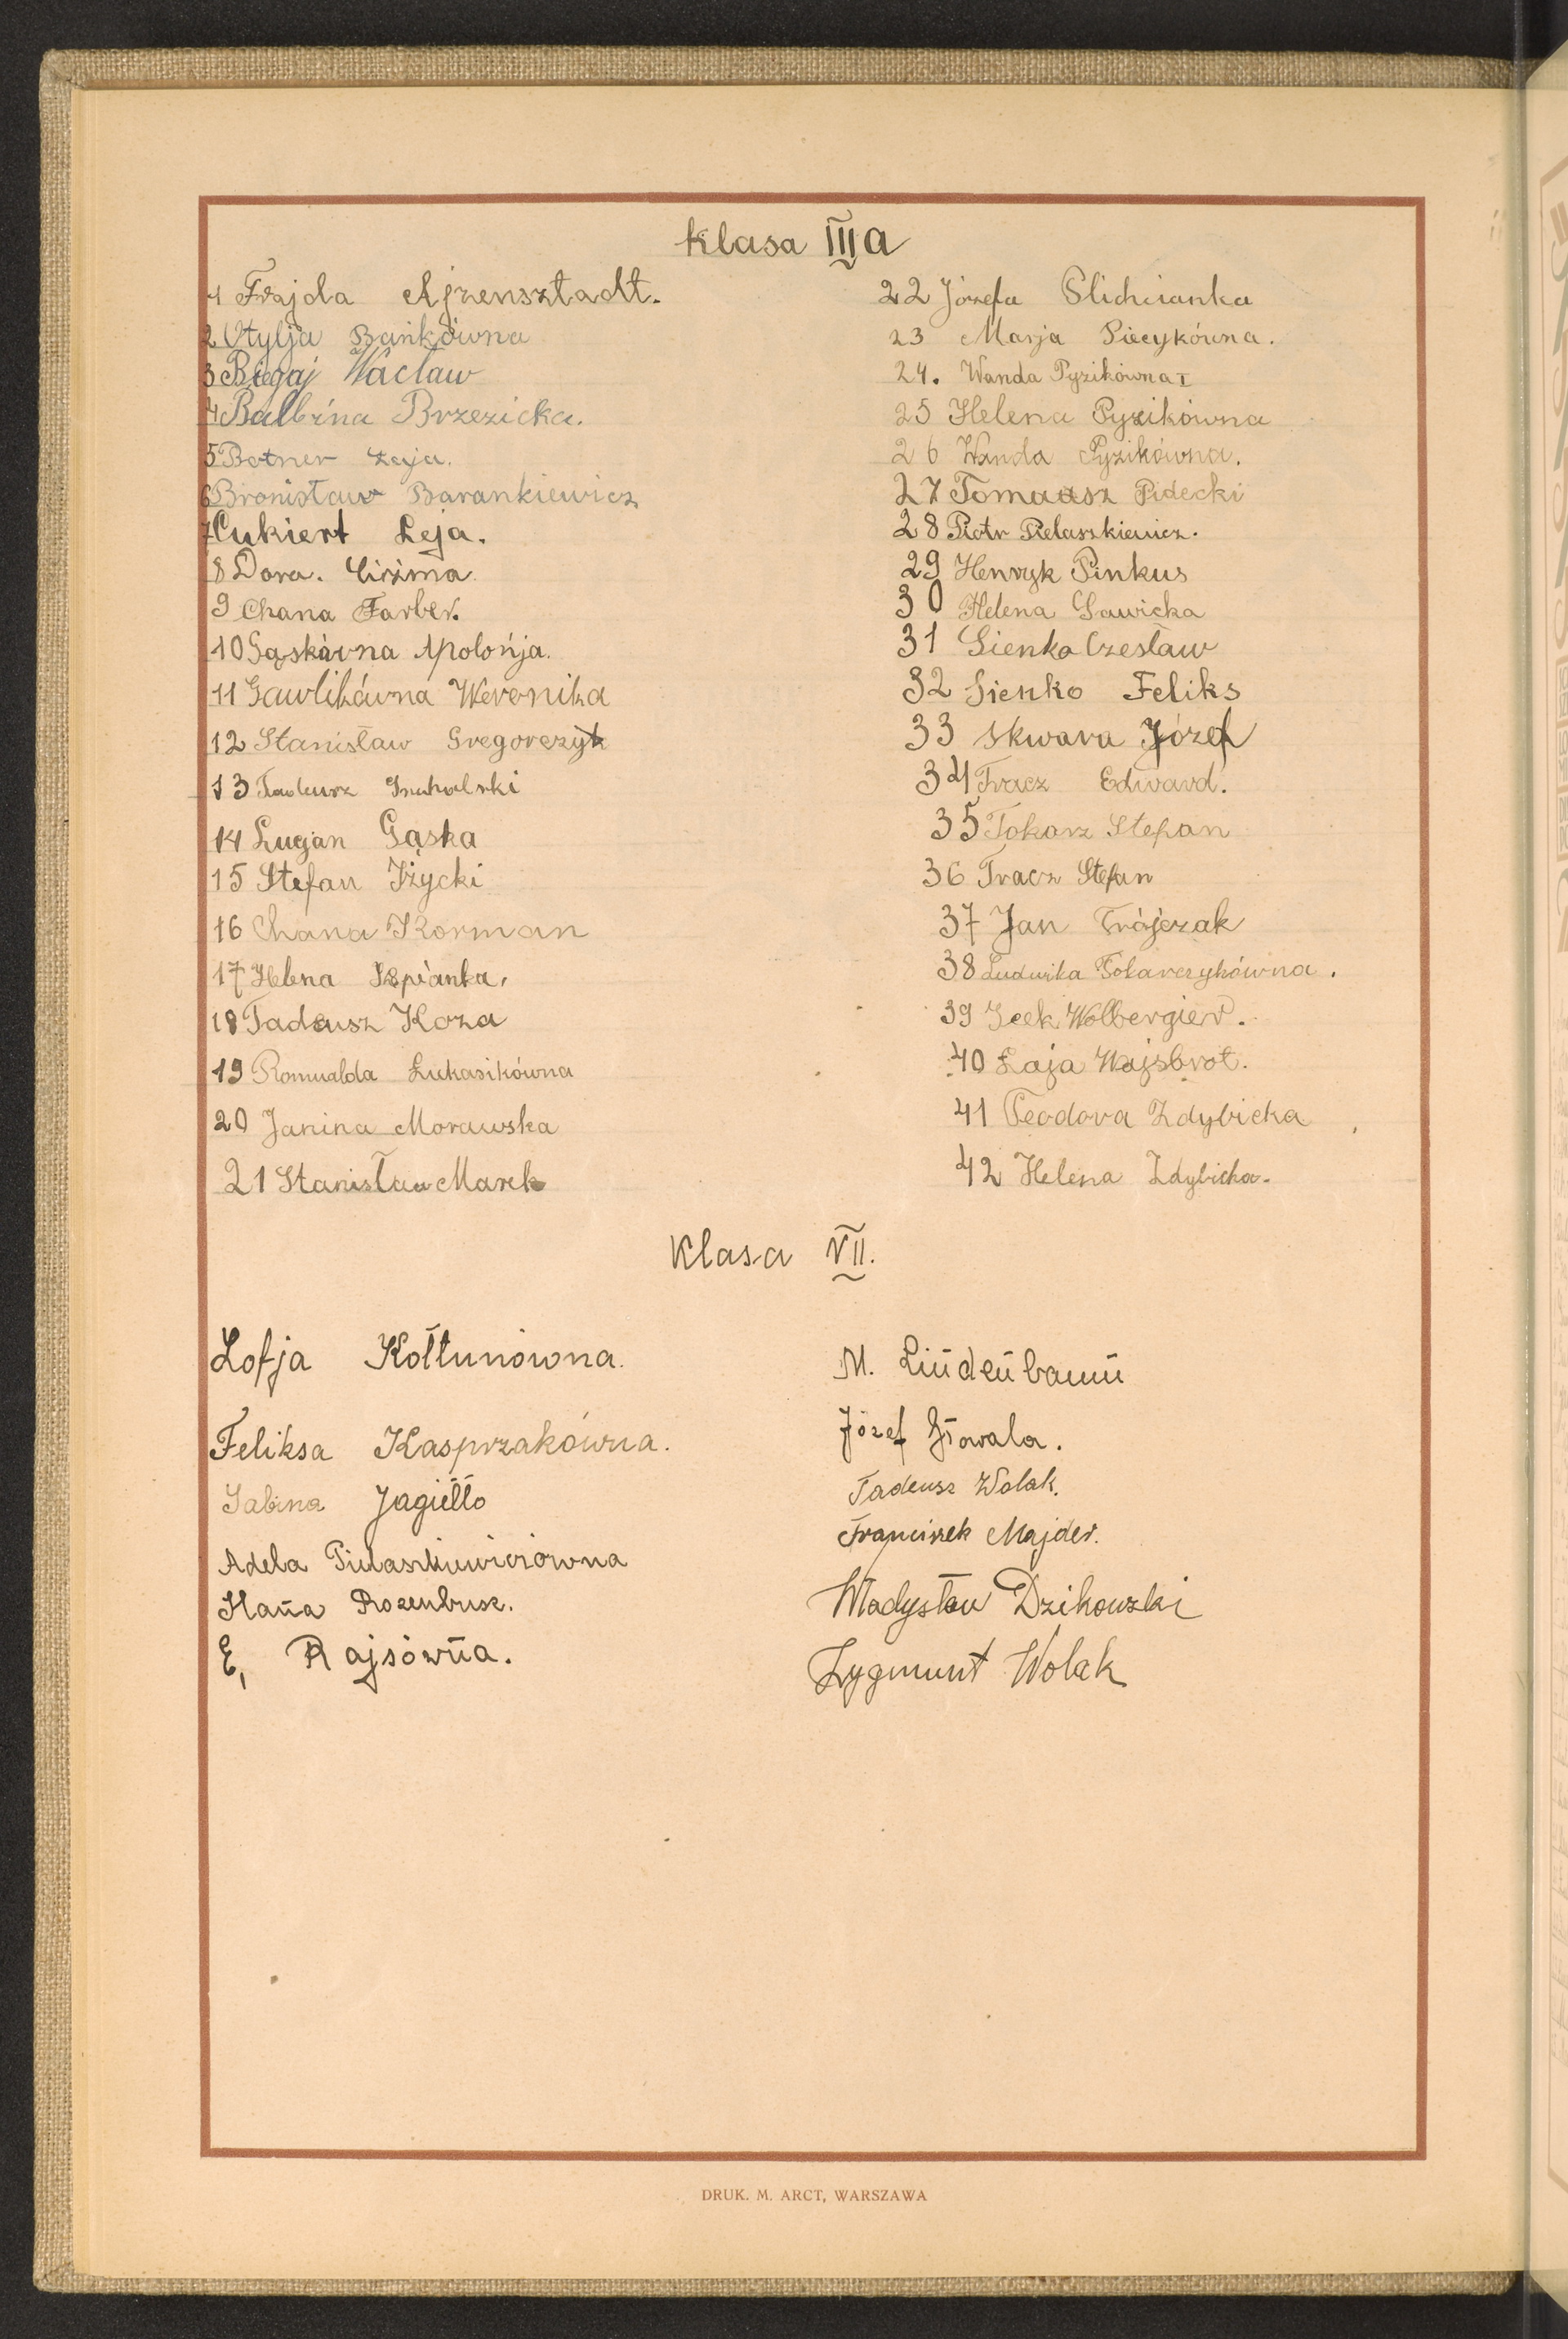 Klasa III a
1 Frajda Ajzensztadt.
2 Otylja Bańkówna
3 Biegaj Wacław
4 Balbina Brzezicka.
5 Botner Łaja.
6 Bronisław Barankiewicz
7 Cukiert Leja.
8 Dora. Cizma
9 Chana Farber.
10 Gąskówna Apolońja.
11 Gawlikówna Weronika
12 Stanisław Gregorczyk
13 Tadeusz
14 Lucjan Gąska
15 Stefan Iżycki
16 Chana Korman
17 Helena
18 Tadeusz Koza
19 Romualda Łukasikówna
20 Janina Morawska
21 Stanisław Marek
22 Józefa Olichcianka
23 Marja Piecykówna.
24. Wanda Pyzikówna I
25 Helena Pyzikówna
26 Wanda Pyzikówna.
27 Tomasz Pidecki
28 Piotr Pielaszkiewicz.
29 Henryk Pinkus
30 Helena Sawicka
31 Sienko Czesław
32 Sienko Feliks
33 Skwara Józef
34 Tracz Edward.
35 Tokarz Stefan
36 Tracz Stefan
37 Jan Trójczak
38 Ludwika Tokarczykówna.
39 Icek Wolbergier.
40 Łaja Wajsbrot.
41 Teodora Zdybicka
42 Helena Zdybicka.
Klasa VII.
Zofja Kołtunówna.
Feliksa Kasprzakówna.
Sabina Jagiełło
Adela Pielaszkiewiczówna
Hana Rozenbusz.
E, Rajsówna.
M. Lindenbaum
Józef
Tadeusz Wolak.
Franciszek Majder.
Władysław Dzikowski
Zygmunt Wolak
DRUK. M. ARCT, WARSZAWA